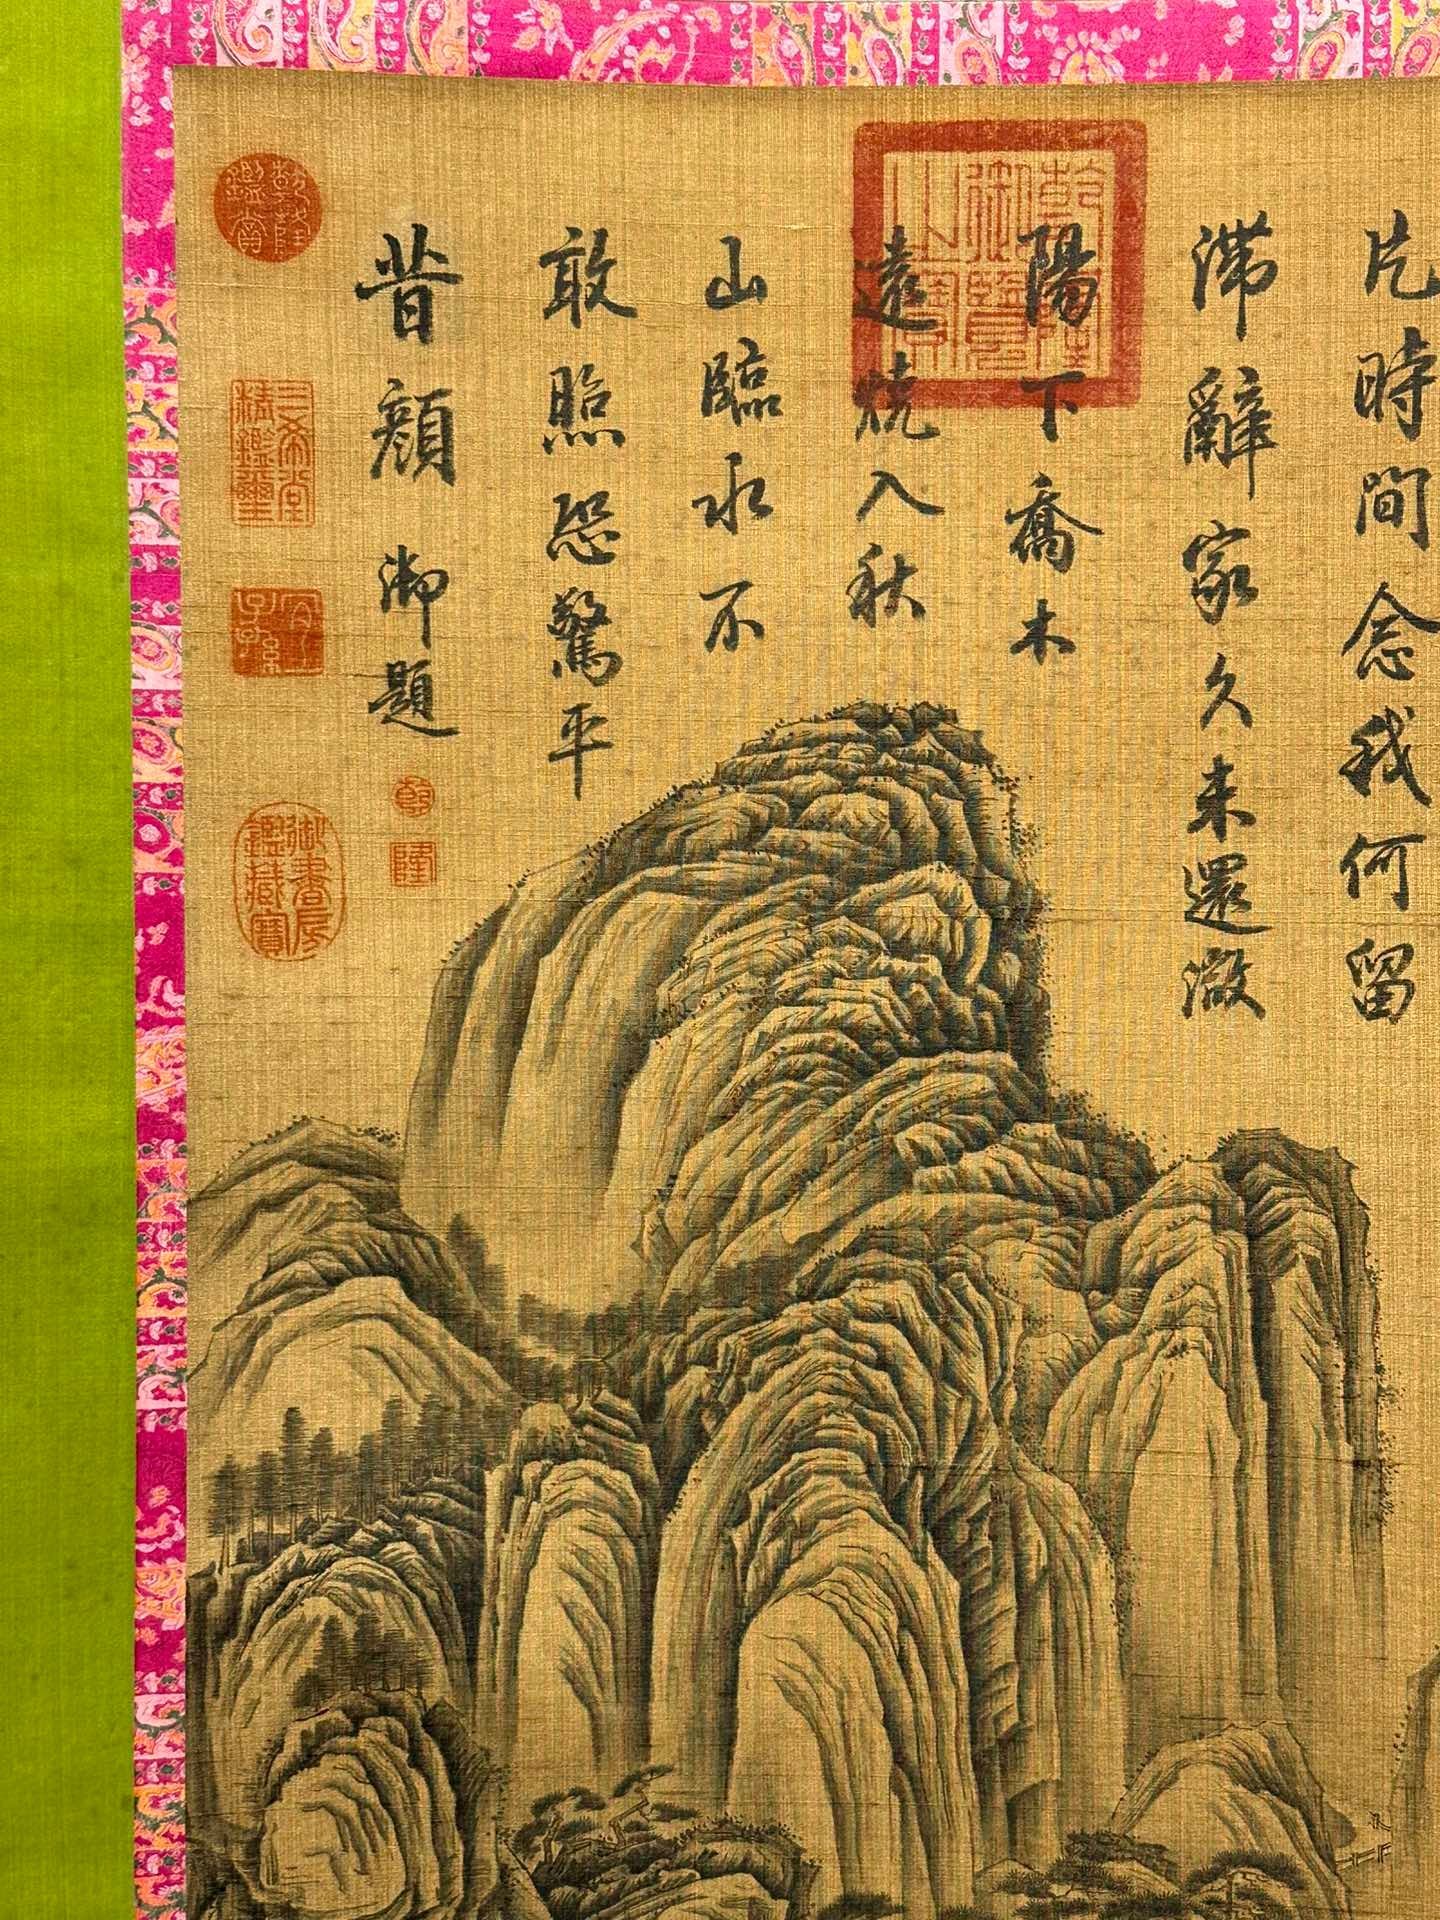 片時間念我何留
滞辭家久未還澂
陽下喬木
遠燒入秋
山臨水不
敢照恐驚平
昔顏 御題
乾隆御覽之寶
乾隆鑑賞
三希堂精鑑璽
宜子孫
乾隆
御書房鑑藏寶